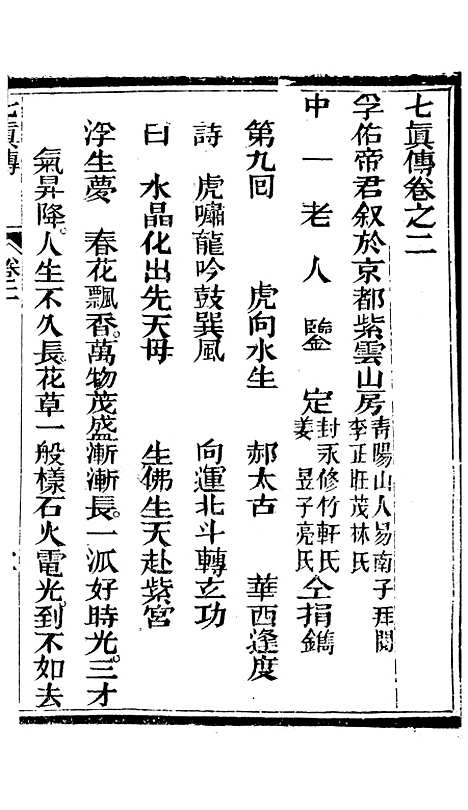 七眞傳卷之二
孚佑帝君叙於京都紫雲山房靑陽山人易南子拜閱
李正旺茂林氏
中一老人鑒定封永修竹軒氏仝捐鐫
姜昱子亮氏
第九回　虎向水生　郝太古　華西逢度
詩　虎嘯龍吟鼓巽風　向運北斗轉玄功
曰　水晶化出先天母　生佛生天赴紫宮
浮生夢　春花飄香。萬物茂盛漸漸長。一派好時光。三才
氣昇降。人生不久長。花草一般樣。石火電光。到不如去
七眞傳　卷二